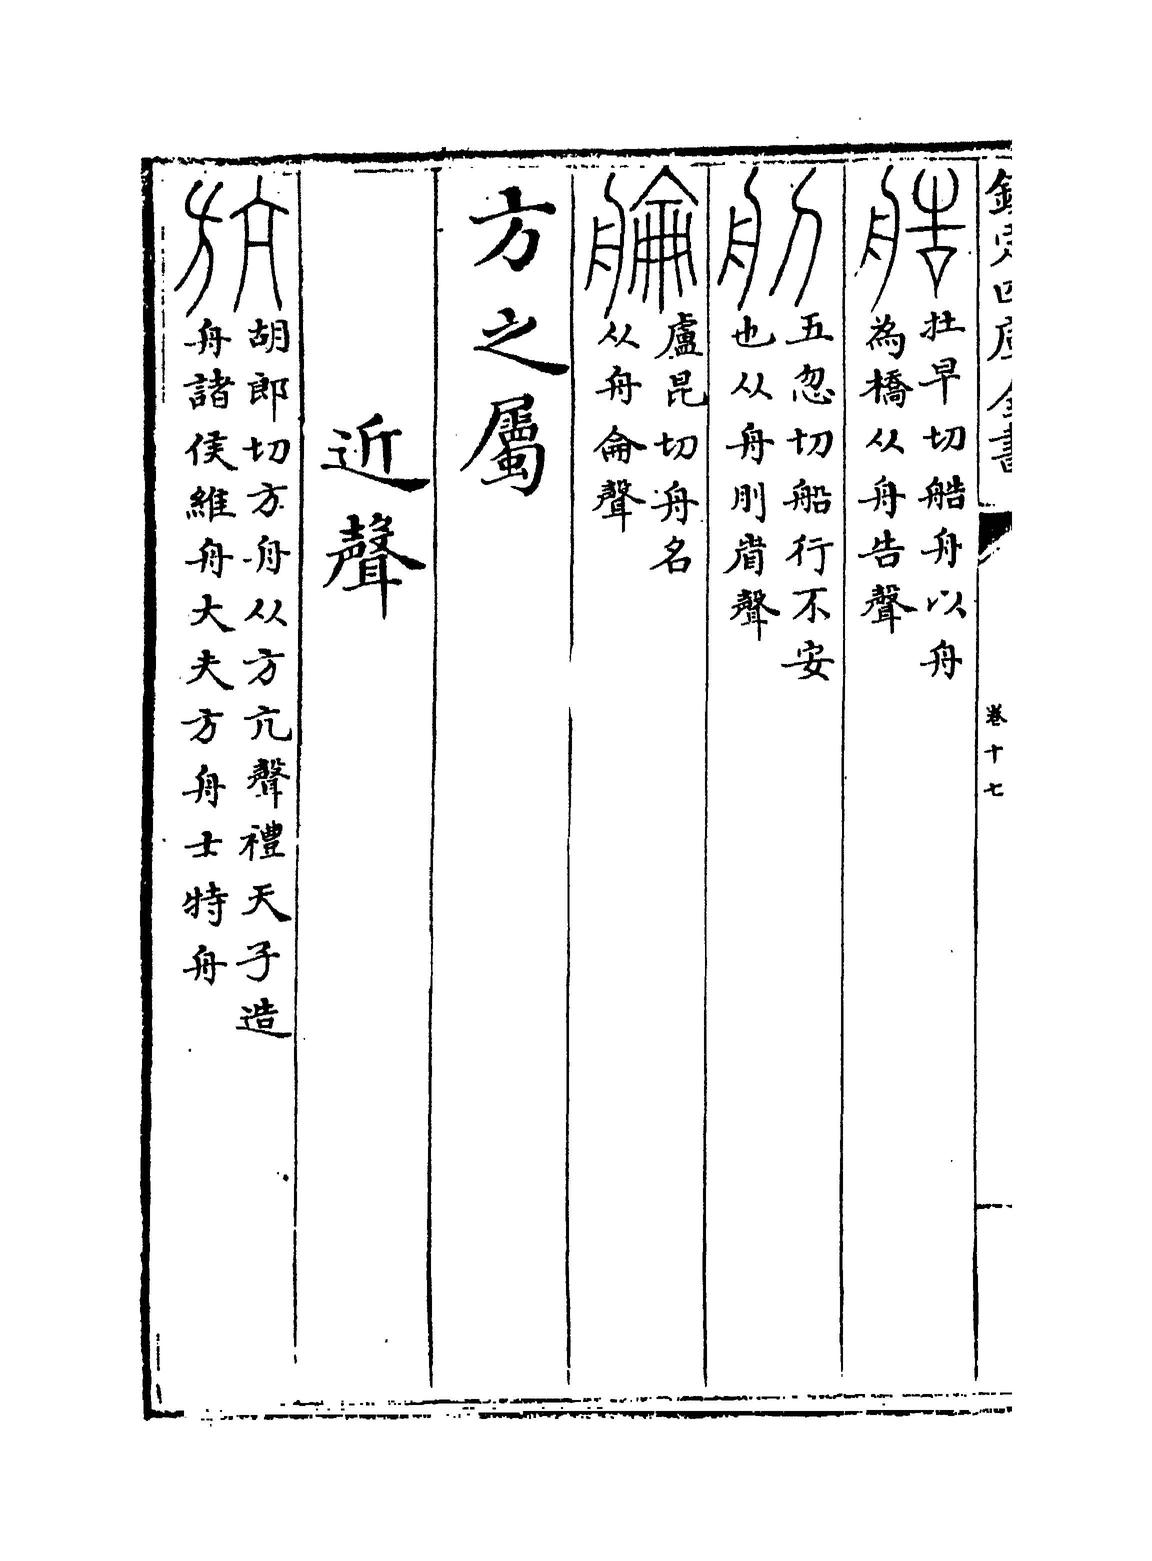 欽定四庫全書
卷十七
艁
扗早切艁舟以舟
為橋从舟告聲
舠
五忽切船行不安
也从舟刖省聲
䑳
盧昆切舟名
从舟侖聲
方之屬
近聲
斻
胡郎切方舟从方亢聲禮天子造
舟諸侯維舟大夫方舟士特舟